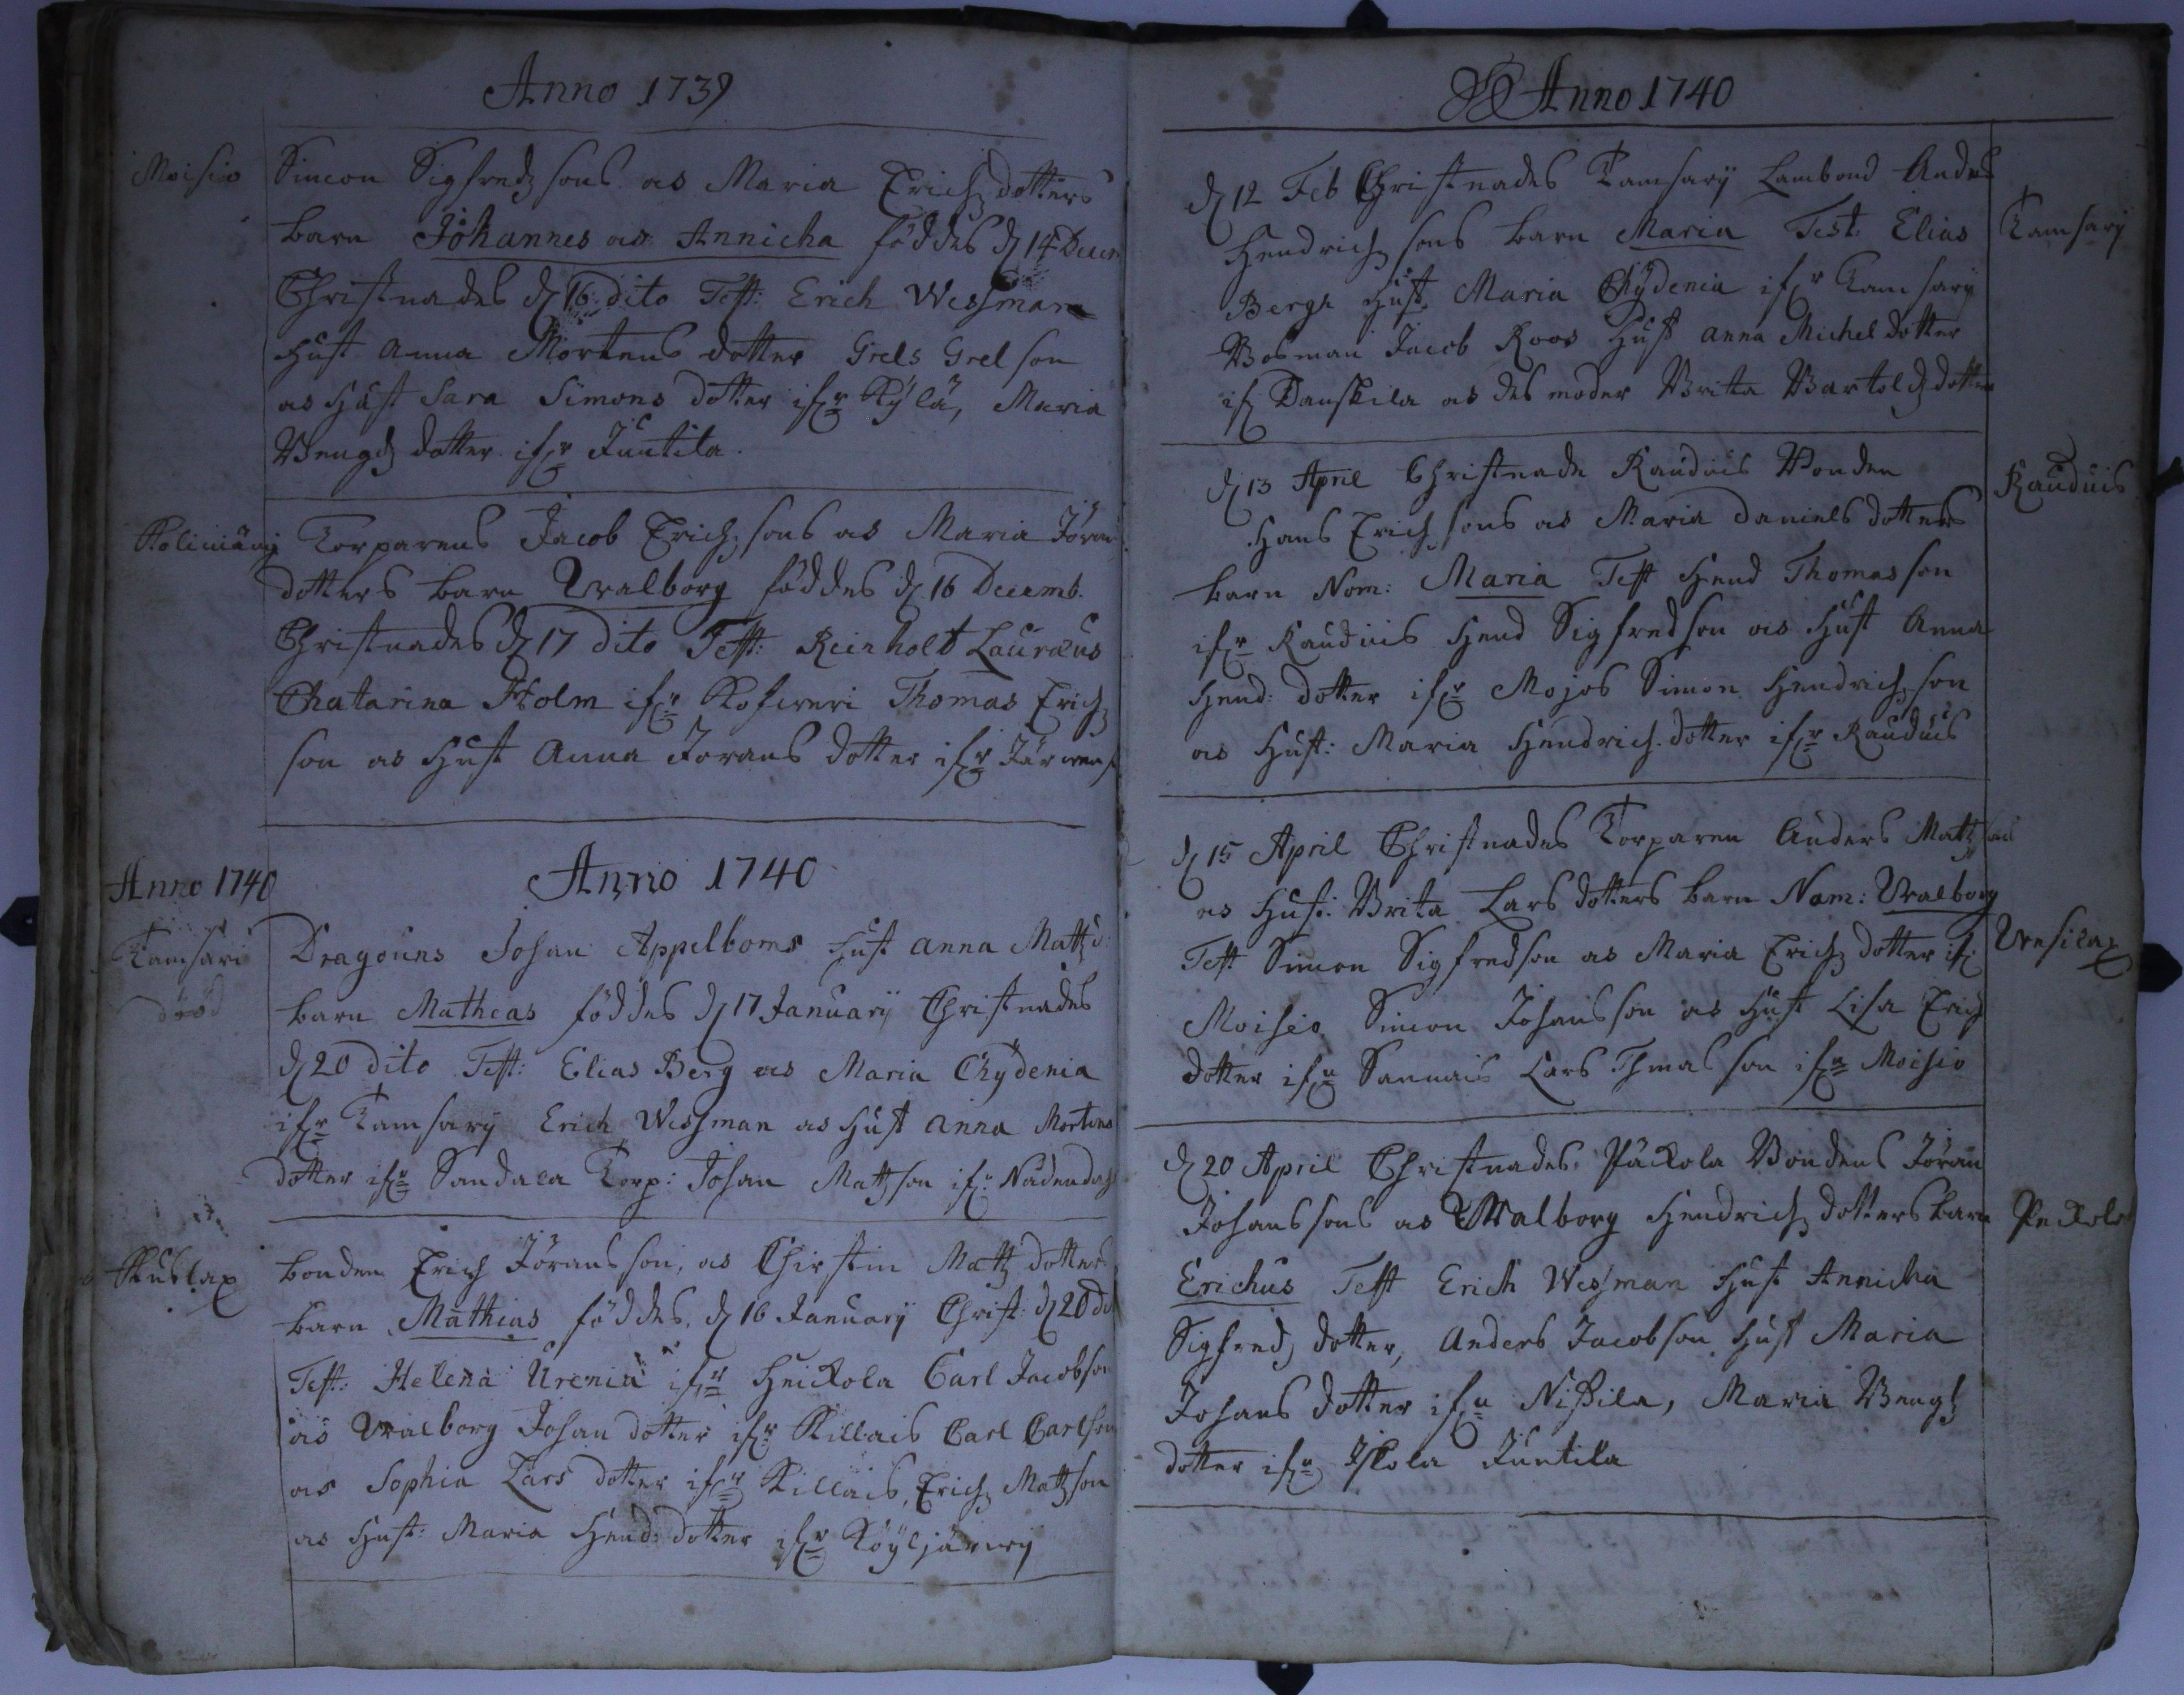 Anno 1739
Moisio
Simon Sigfredz sons as Maria Erichz dotters
barn Johannes as Annicha föddes d 14 Decem
Christnades d 16 dito Test: Erich Wessman
Hust Anna Mortens dotter Grels Grelson
as Hust Sara Simons dotter ifr Kylä, Maria
Bengdz dotter ifr Juntila.
Torparens Jacob Erichz sons as Maria Jöran
dotters barn Walborg föddes d 16 Decemb.
Christnades d 17 dito Test: Reinholt Lauræus
Chatarina Holm ifr Thomas Erichz
son as Hust Anna Jorans dotter ifr
Anno 1740
Anno 1740
Tamsari
död
Dragouns Johan Appelboms Hust Anna Mattz d:
barn Matheas föddes d 17 Januarij Christnades
d 20 dito Test: Elias Berg as Maria Chydenia
ifr Tamsarij Erich Wessman as Hust Anna Mortens
dotter ifr Sandala Torp: Johan Mattson ifr Nådendahl
Kuslax
bonden Erich Jöransson, as Chirstin Mattz dotters
barn Mathias föddes, d 16 Januarij Christ: d 20 dit
Test: Helena Urenia ifr Heickola Carl Jacobson
as Walborg Johan dotter ifr Killais Carl Carlson
as Sophia Lars dotter ifr Killais, Erich Mattson
as Hust: Maria Hend: dotter ifr Köyljärwij
Anno 1740
d 12 Feb Christnades Tamsarij Lambond Anders
Hendrich sons barn Maria Test: Elias
Tamsarij
Bergs Hust. Maria Chydenia ifr Tamsarij
Bosman Jacob Roos Hust Anna Michel dotter
if Danskila as des moder Brita Bartoldz dotter
d 13 April Christnade Rauduis Bonden
Rauduis
Hans Erich sons as Maria Daniels dotters
barn Nom: Maria Test Hend Thomasson
ifr Rauduis Hend Sigfredson as Hust Anna
Hend: dotter ifr Mojos Simon Hendrichson
as Hust: Maria Hendrich. dotter ifr Rauduis
d 15 April Christnades Torparen Anders Mattzsons
as Hust: Brita Lars dotters barn Nam: Walborg
Test Simon Sigfredson as Maria Erichz dotter if
Wesilax
Moisio Simon Johansson as Hust Lisa Erich
dotter ifr Sannais Lars Thmasson ifr Moisio
d 20 April Christnades Päckola Bondens Jöran
Johanssons as Walborg Hendrichz dotters barn
Peckola
Erichus Test Erich Wessman Hust Annicha
Sigfredz dotter, Anders Jacobson Hust Maria
Johans dotter ifr Nissila, Maria Bengtz
dotter ifr Iskola Juntila